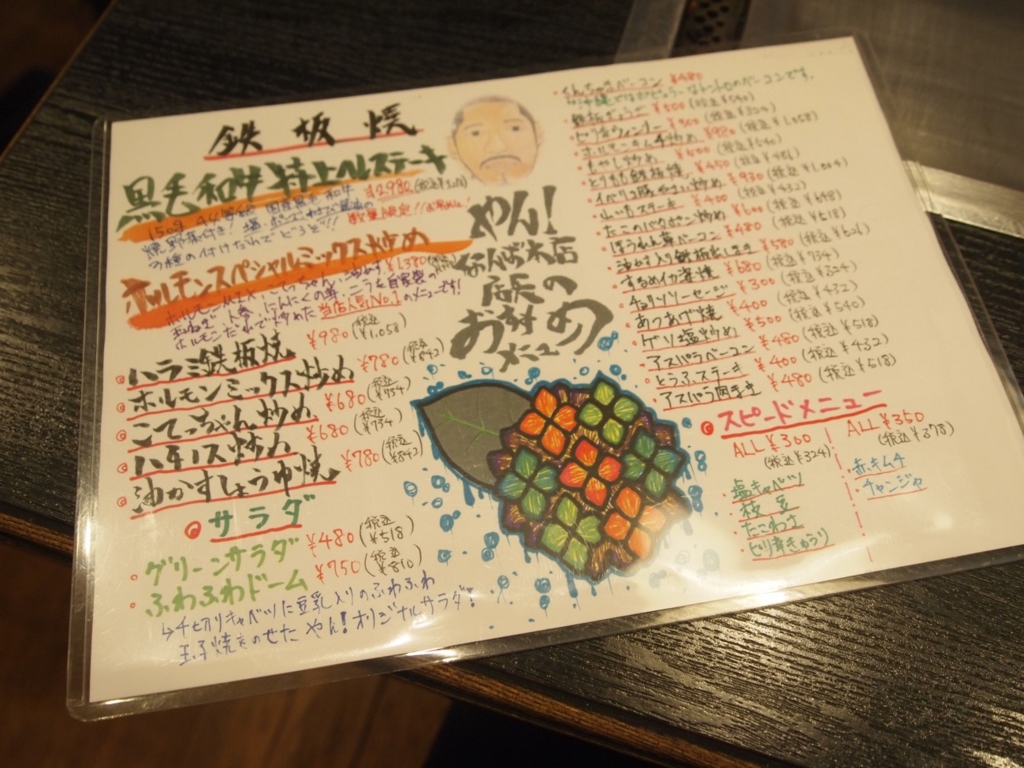 鉄板焼
黒毛和牛特上ヘレステーキ
¥2980
数量限定!!お早めに!
3種の付けだれでどうぞ!!
ホルモンスペシャルミックス炒め
¥1380
ホルモンだれで炒めた当店人気No.1のメニューです!
ハラミ鉄板焼 ¥980 (税込¥1,058)
ホルモンミックス炒め ¥780 (税込¥842)
こてっちゃん炒め ¥680 (税込¥734)
ハチノス炒め ¥680 (税込¥734)
油かすしょうゆ焼 ¥780 (税込¥842)
サラダ
・グリーンサラダ ¥480 (税込¥518)
・ふわふわドーム ¥750 (税込¥810)
↳チギリキャベツに豆乳入りのふわふわ
玉子焼きのせた やん!オリジナルサラダ!
やん!
なんば本店
店長の
おすすめ
メニュー
・くんちゃまベーコン ¥480
・鉄板ぎょうざ ¥500 (税込¥540)
・セセリ ¥300 (税込¥324)
・ホルモンキムチ炒め ¥980 (税込¥1,058)
・もやし炒め ¥500 (税込¥540)
・とり もも鉄板焼 ¥450 (税込¥486)
・イベリコ豚やさい炒め ¥930 (税込¥1,004)
・山いもステーキ ¥400 (税込¥432)
・たこのバクポン炒め ¥600 (税込¥648)
・ほうれん草ベーコン ¥480 (税込¥518)
・油かす入り鉄板だしまき ¥580 (税込¥626)
・するめイカ姿焼 ¥680 (税込¥734)
・チョリソーセージ ¥300 (税込¥324)
・あつあげ焼 ¥400 (税込¥432)
・ゲソ塩炒め ¥500 (税込¥540)
・アスパラベーコン ¥480 (税込¥518)
・とうふステーキ ¥400 (税込¥432)
・アスパラ肉まき ¥480 (税込¥518)
スピードメニュー
ALL ¥300
(税込¥324)
塩キャベツ
枝豆
たこわさ
ピリ辛きゅうり
ALL ¥350
(税込¥378)
赤キムチ
チャンジャ